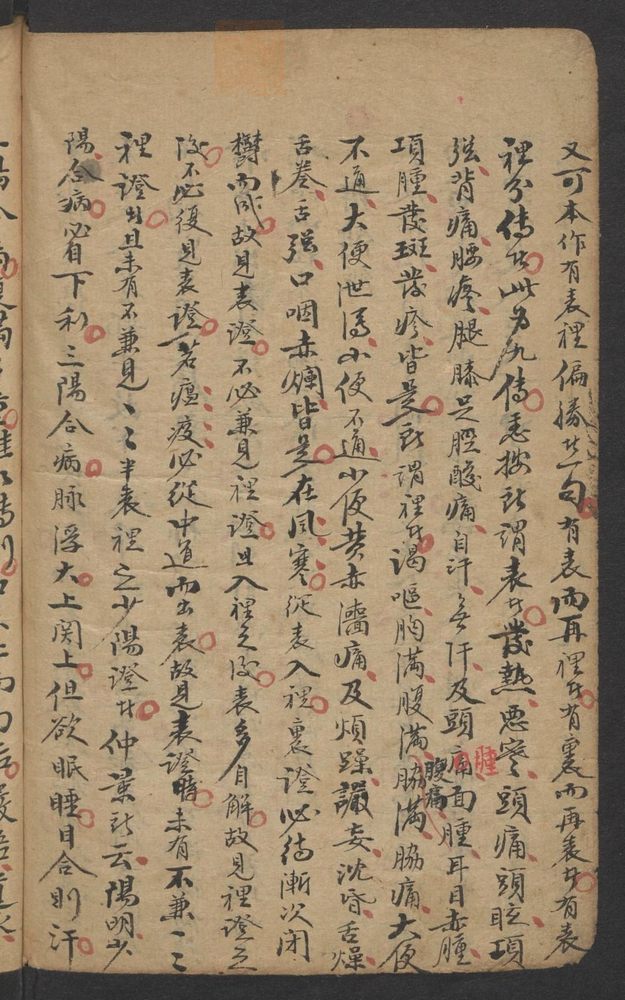 又可本作有表裡偏勝者一句有表而再裡者有裏而再表者有表
裡分傳者此為九傳愚按所謂表者發熱惡寒頭痛頭眩項
强背痛腰疼腿膝足脛酸痛自汗無汗及頭腫面腫耳目赤腫
項腫發斑發疹皆是所謂裡者渴嘔胸滿腹滿腹痛脇滿脇痛大便
不通大便泄瀉小便不通小便黃赤濇痛及煩躁讝妄沈昏舌燥
舌卷舌强口咽赤爛皆是在風寒從表入裡裏證必待漸次閉
欝而成故見表證不必兼見裡證且入裡之後表多自解故見裡證之
後不必復見表證若瘟疫必從中道而出表故見表證時未有不兼〻
裡證者且未有不兼見〻〻半表裡之少陽證者仲景所云陽明少
陽合病必自下利三陽合病脉浮大上関上但欲眠睡目合則汗